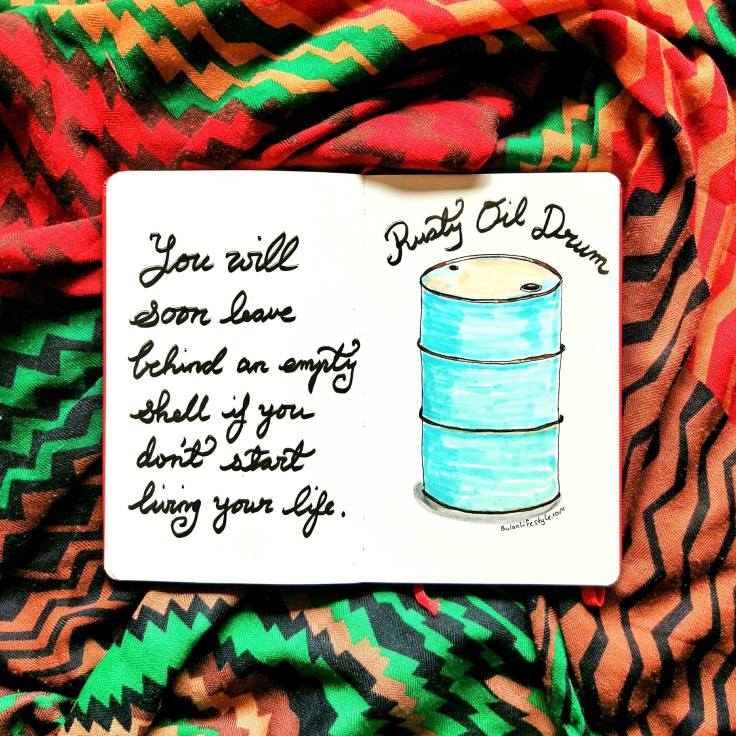 You will
soon leave
behind an empty
shell if you
don't start
living your life.
Rusty Oil Drum
BulanLifestyle.com